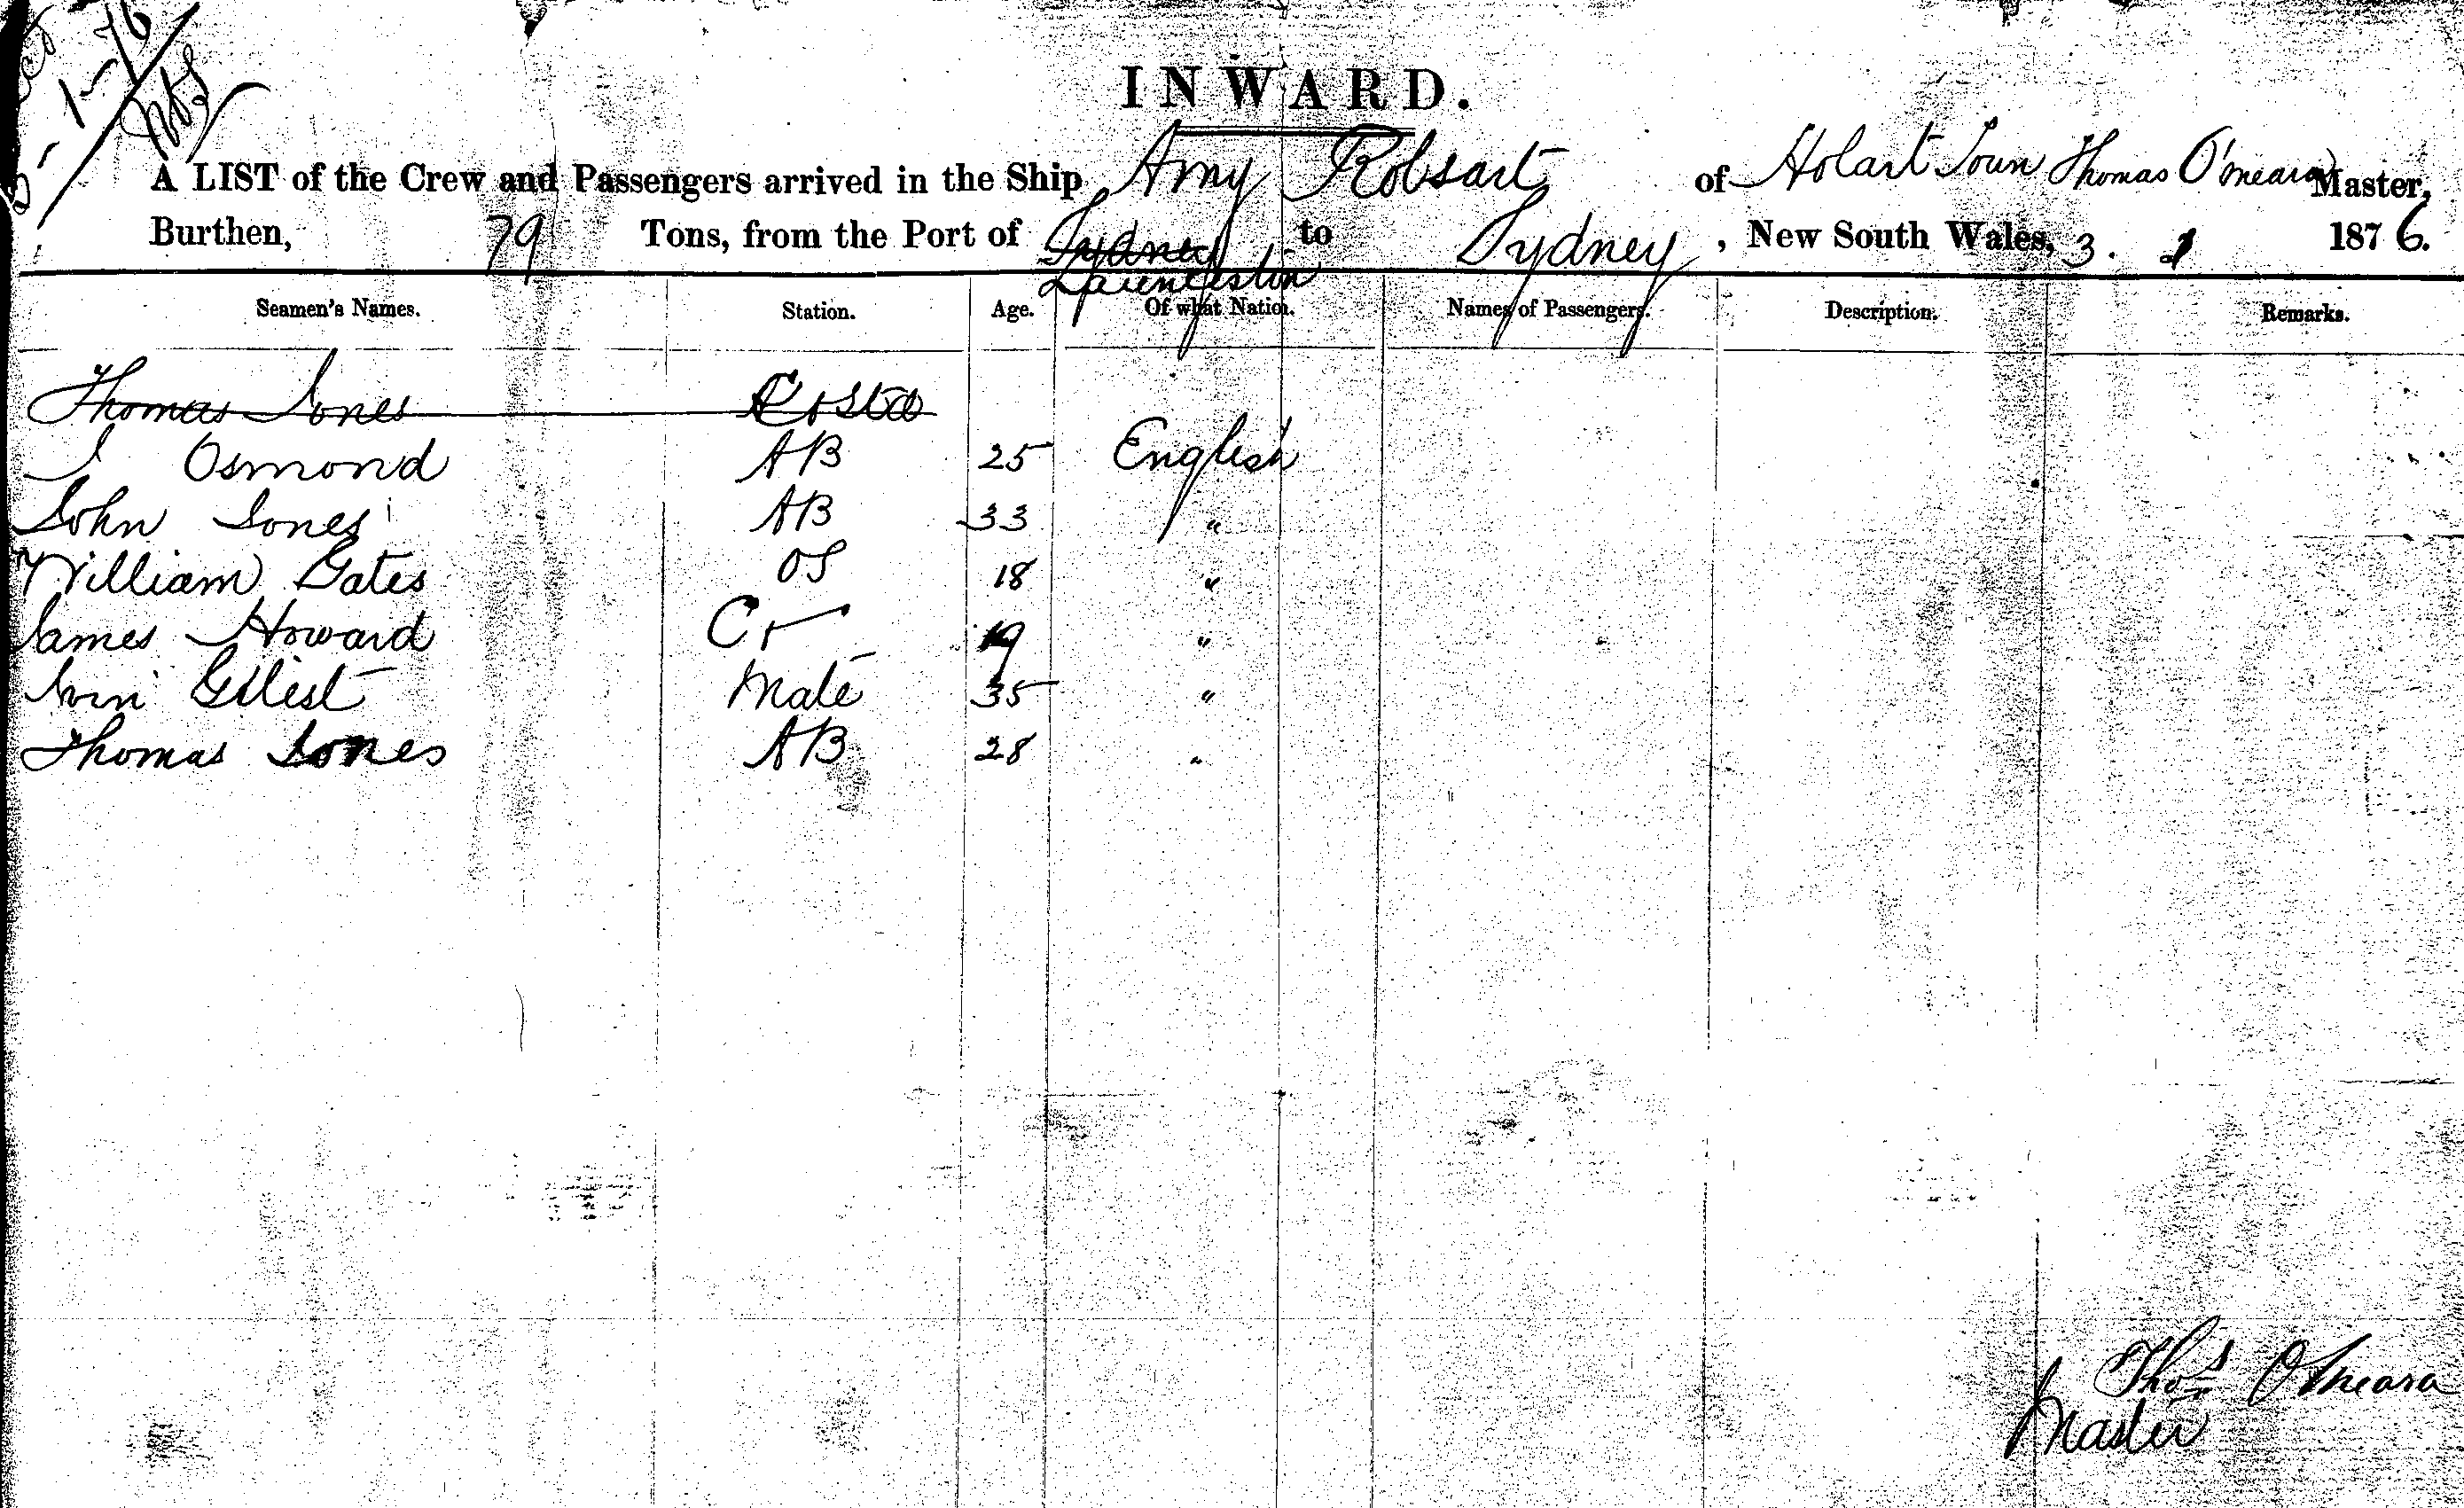 5-1-76
INWARD.
A LIST of the Crew and Passengers arrived in the Ship Amy Robsart of Hobart Town Thomas O'meara Master,
Burthen, 79 Tons, from the Port of Sydney to Sydney, New South Wales, 3. 1 1876.
Launceston
Seamen's Names. Station. Age. Of what Nation. Names of Passengers. Description. Remarks.
Thomas Jones
J Osmond AB 25 English
John Jones AB 33 "
William Gates OS 18 "
James Howard 19 "
Mate 35 "
Thomas Jones AB 28 "
Thos OMeara
Master